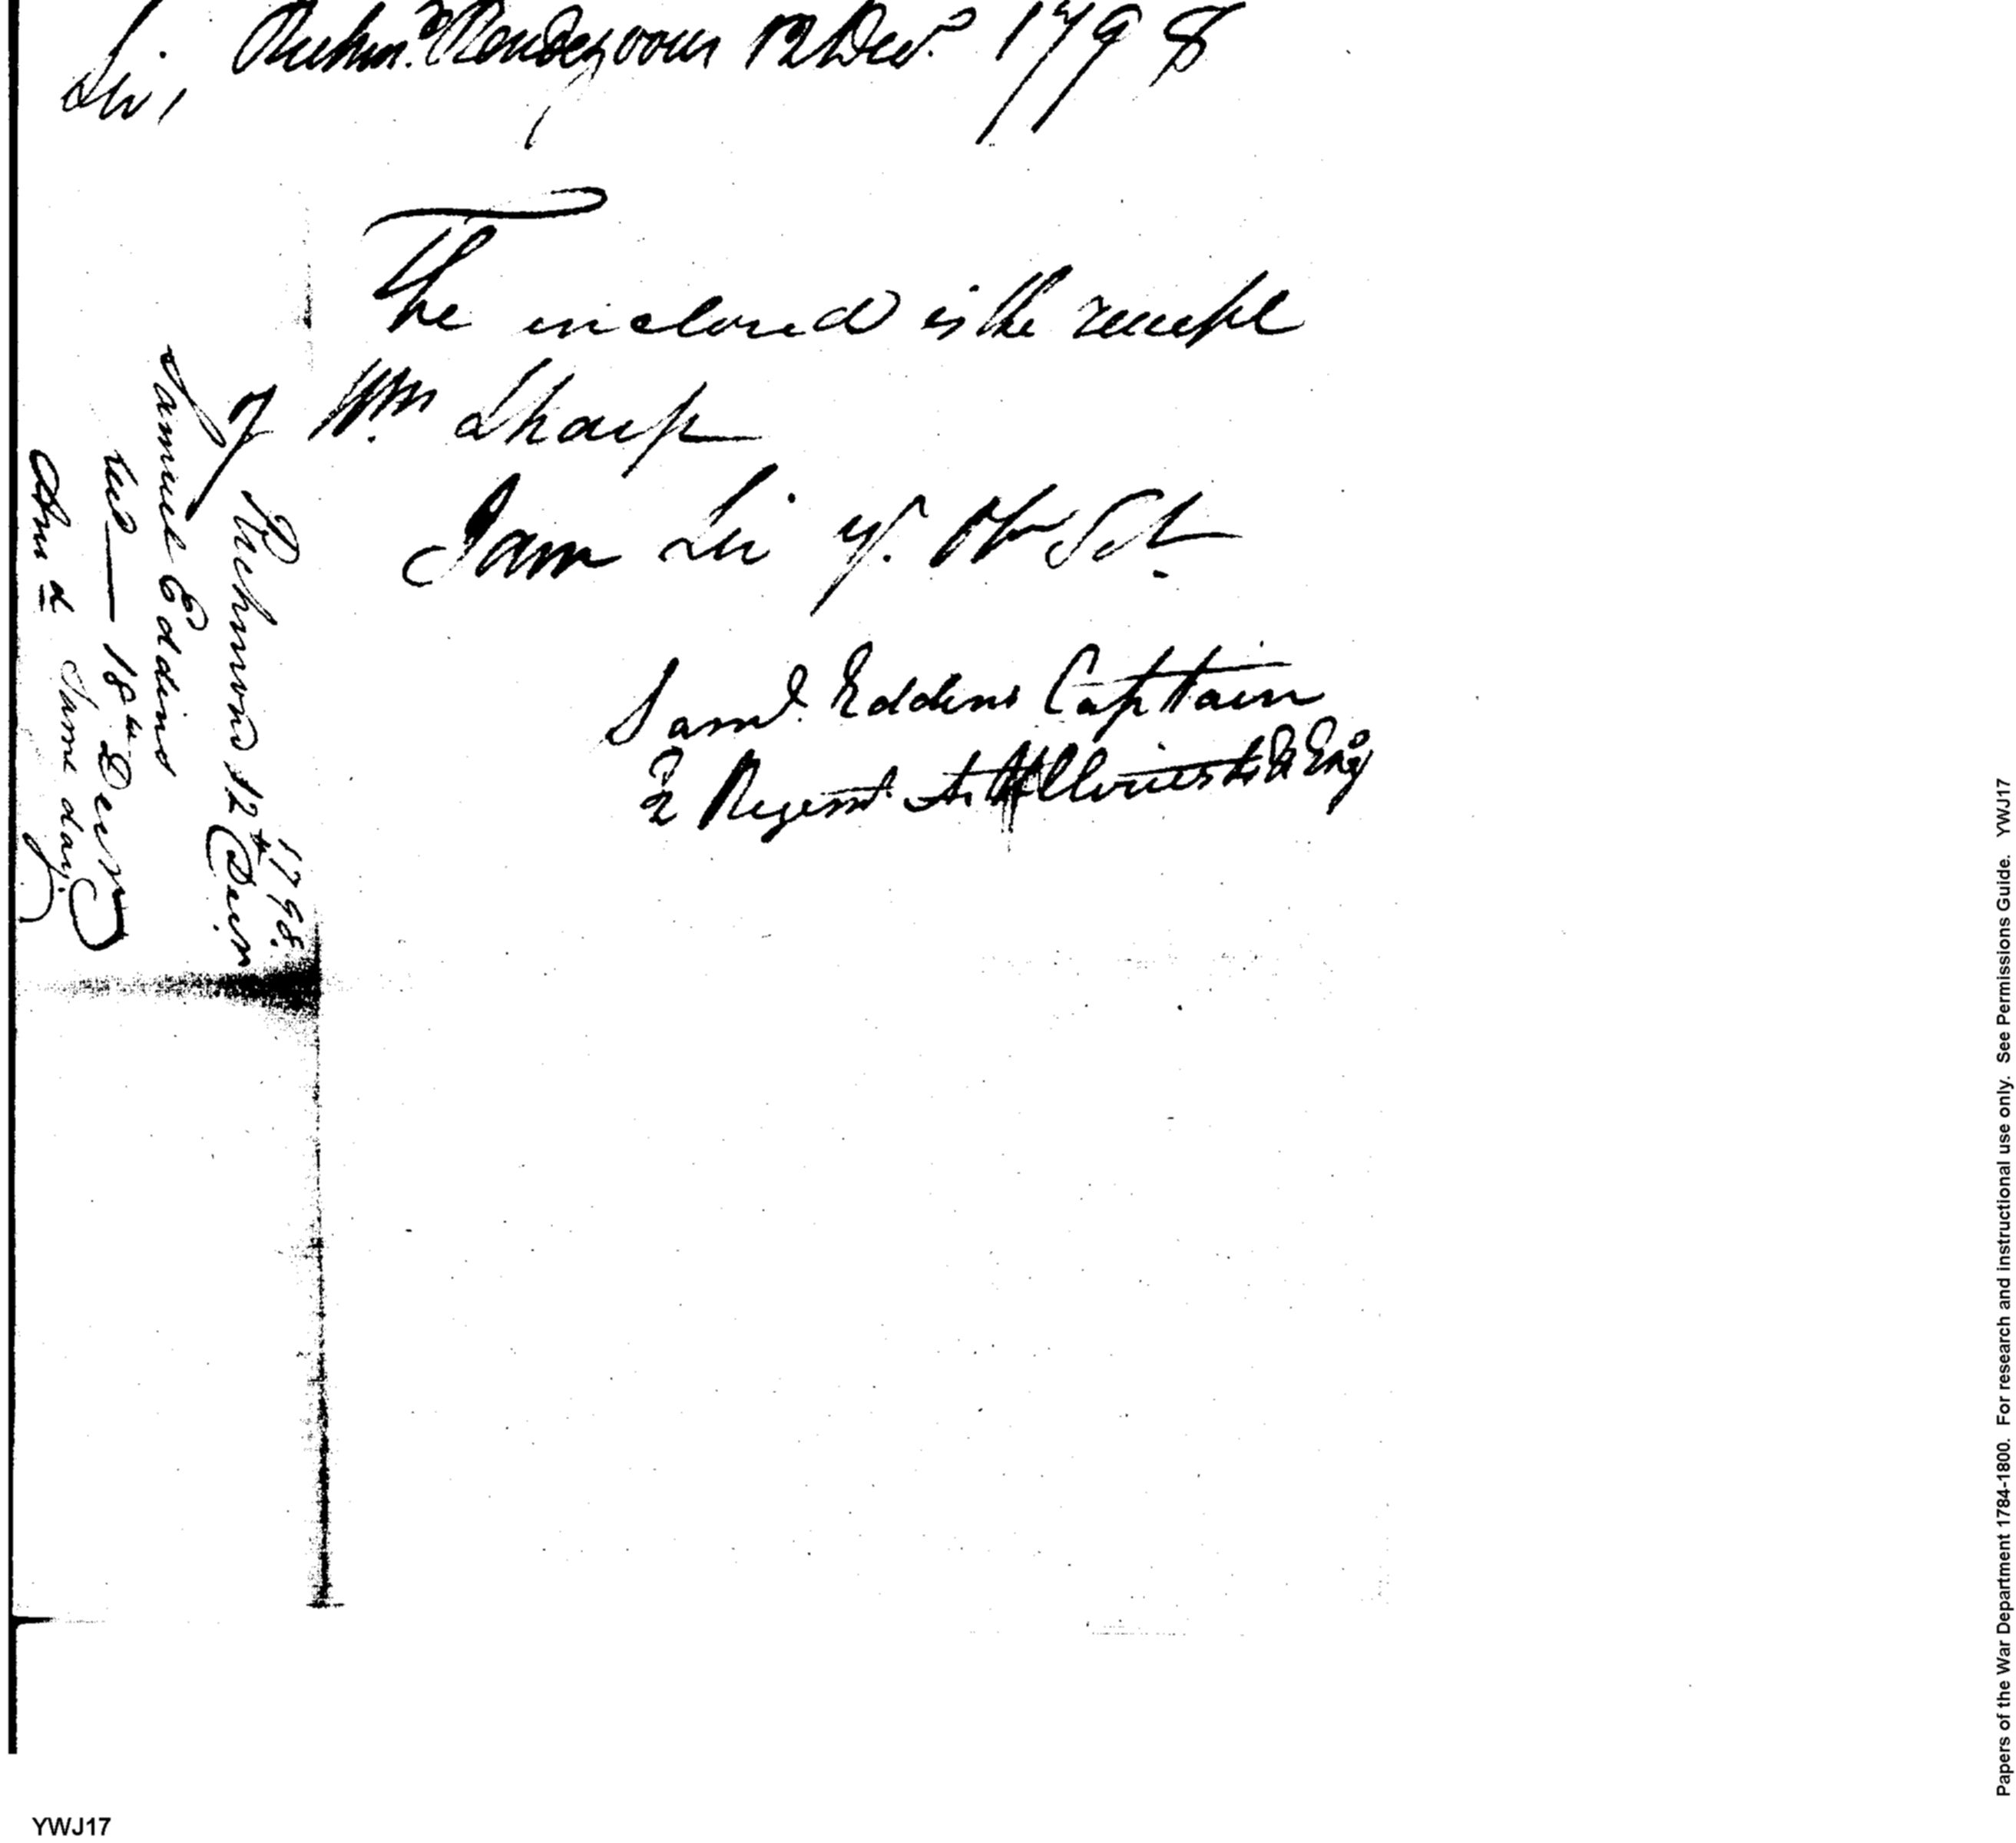 Richm.d Rendezvous 12 Decr. 1798
Sir,
The inclosed is the receipt
Wm Sharp
I am Sir yr. Ob Sert
Saml. Eddens Captain
2 Regemt. Artilleriests & Eng
Richmond 12th Decr
1798.
Samuel Eddins
recd — 18th Decr
Ansd same day.
Papers of the War Department 1784-1800. For research and instructional use only. See Permissions Guide. YWJ17
YWJ17